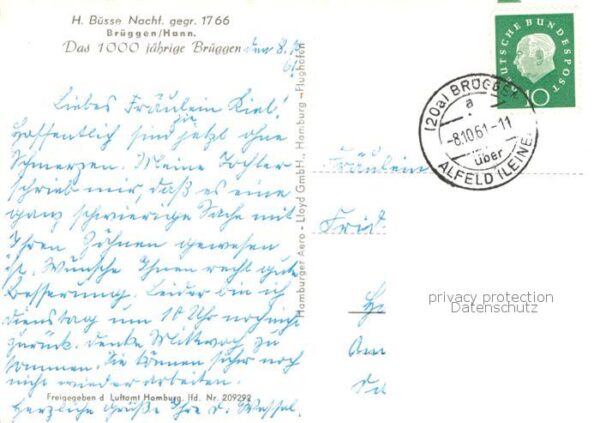 H. Büsse Nachf. gegr. 1766
Brüggen/Hann.
Das 1000 jährige Brüggen den 8.10.
61
Liebes Fräulein Kiel!
Hoffentlich sind Sie jetzt ohne
Schmerzen. Meine Tochter
schrieb mir, daß es eine
ganz schwierige Sache mit
Ihren Zähnen gewesen
ist. Wünsche Ihnen recht gute
Besserung. Leider bin ich
Dienstag um 10 Uhr noch nicht
zurück. denke Mittwoch zu
kommen. Sie können sicher noch
nicht wieder arbeiten.
Herzliche Grüße Ihre D. Wessel.
Freigegeben d Luftamt Hamburg, lfd. Nr. 209292
Hamburger Aero - Lloyd GmbH., Hamburg - Flughafen
DEUTSCHE BUNDESPOST
10
(20a) BRÜGGEN
a
-8.10.61-11
über
ALFELD (LEINE)
Fräulein
Frid
privacy protection
Datenschutz
Am